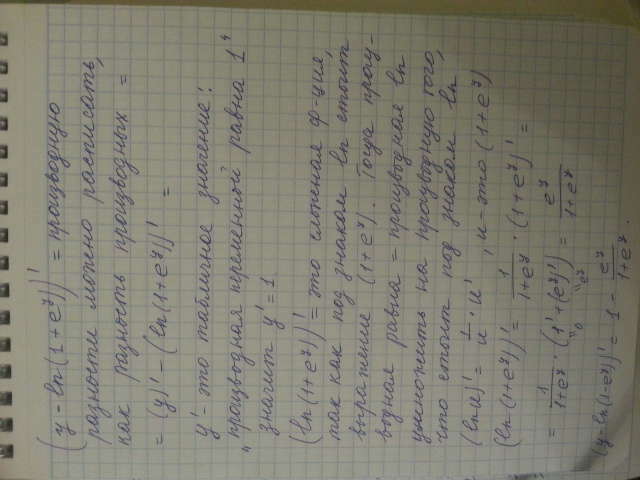 (y - ln(1+e^y))' = производную
разности можно расписать,
как разность производных =
= (y)' - (ln(1+e^y))' =
y' - это табличное значение:
„производная переменной равна 1"
значит y' = 1
(ln(1+e^y))' = это сложная ф-ция,
так как под знаком ln стоит
выражение (1+e^y). Тогда произ-
водная равна = производная ln
умножить на производную того,
что стоит под знаком ln
(ln u)' = 1/u · u' , u - это (1+e^y)
(ln(1+e^y))' = 1/(1+e^y) · (1+e^y)' =
= 1/(1+e^y) · (1' + (e^y)') = e^y/(1+e^y)
"0 "e^y
(y - ln(1-e^y))' = 1 - e^y/(1+e^y) .